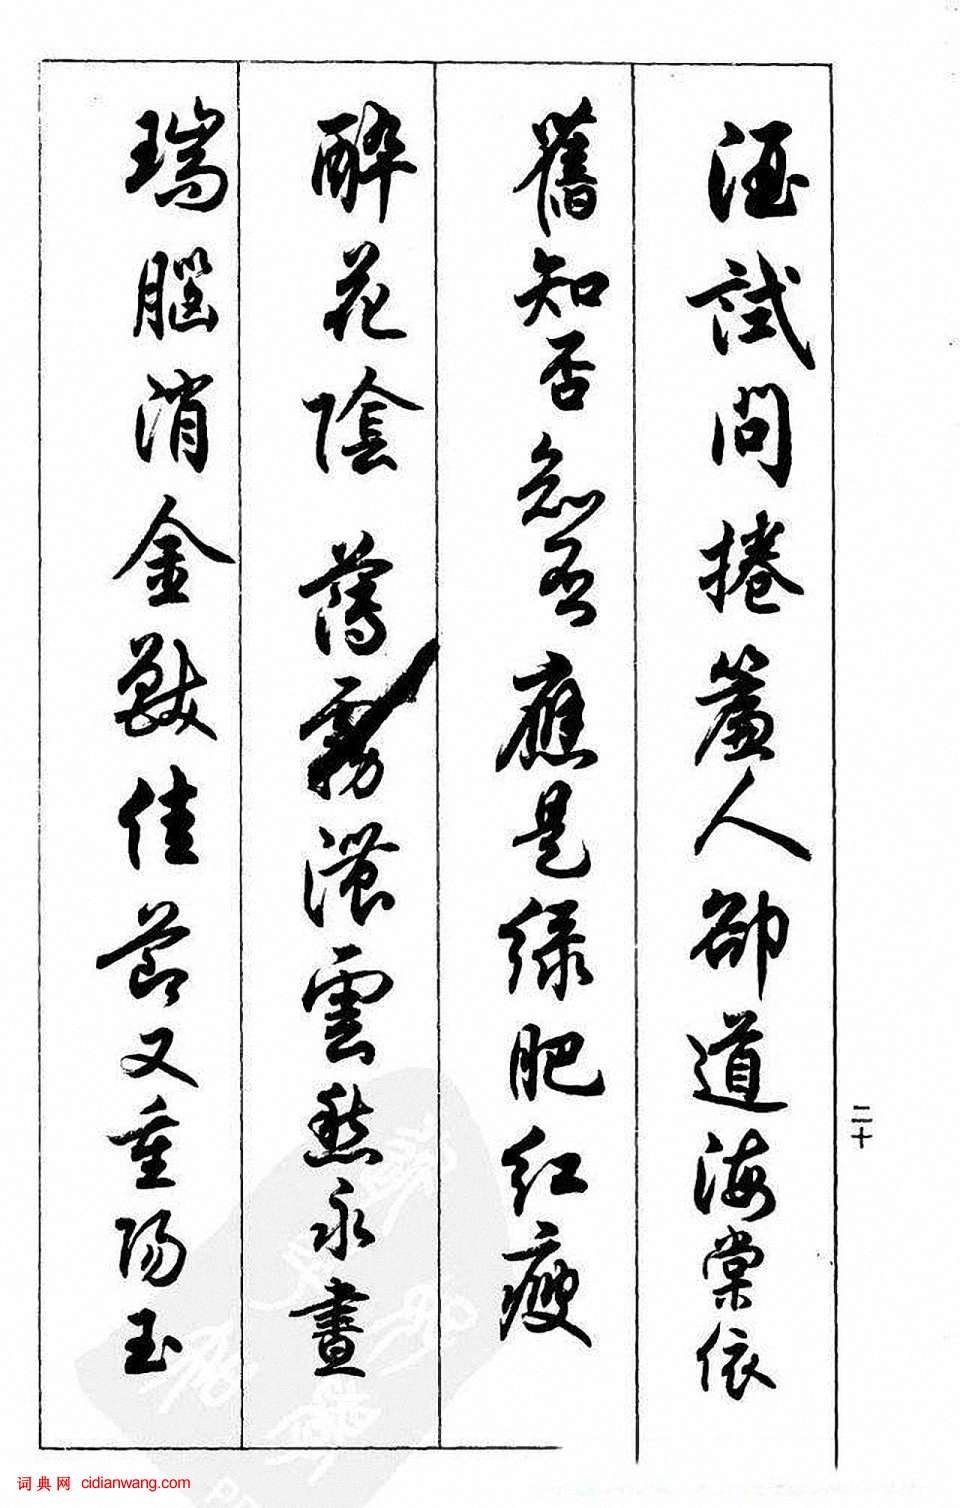 酒試問捲簾人卻道海棠依
舊知否知否應是緑肥紅瘦
醉花陰 薄霧濃雲愁永晝
瑞腦消金獸佳節又重陽玉
二十
词典网 cidianwang.com